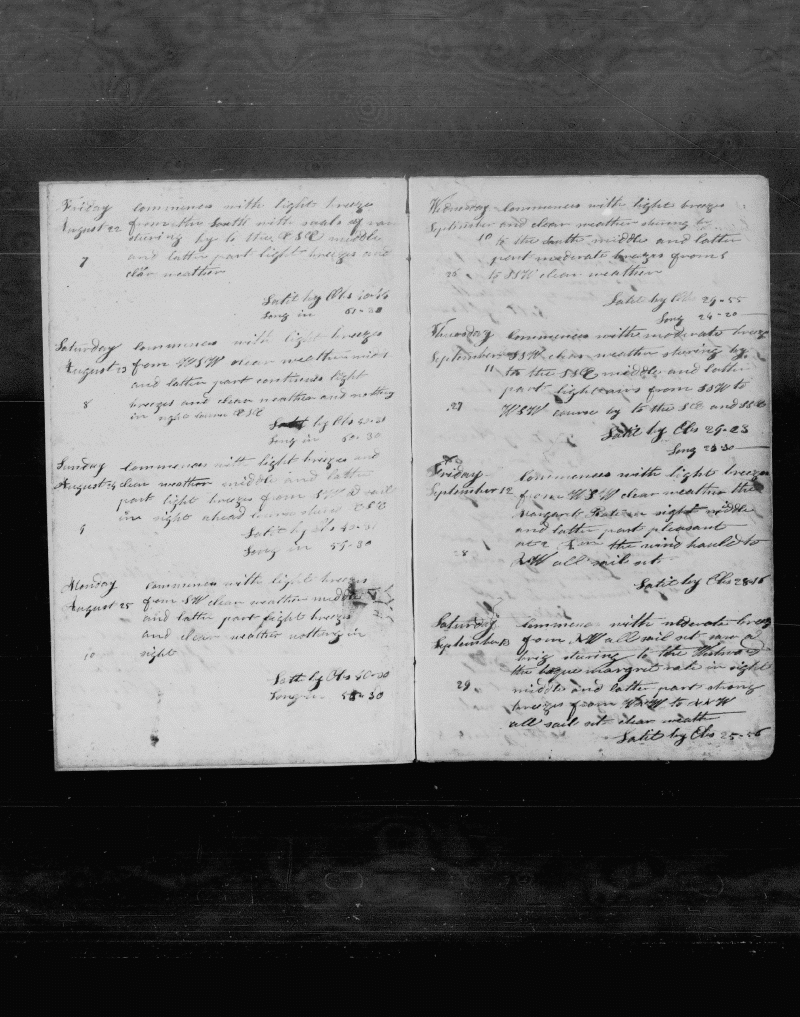 Friday commences with light breezes
August 22 from the South with squals of rain
stering by to the ESE middle
7 and latter part light breezes and
clear weather
Latit by Obs
Long in
Saturday commences with light breezes
August 23 from WSW clear weather mid
and latter part continues light
8 breezes and clear weather and nothing
in sight course ESE
Latit by Obs
Long in 60-30
Sunday commences with light breezes and
August 24 clear weather middle and latter
part light breezes from SW a sail
in sight ahead ESE
9 Latit by Obs
Long in 59-30
Monday commences with light breezes
August 25 from SW clear weather middle
and latter part light breezes
and clear weather nothing in
10 sight
Latt by Obs 40-30
Long in 58-30
Wednesday commences with light breezes
September and clear weather stering by
10 to the South middle and latter
part moderate breezes from S
26 to SSW clear weather
Latit by Obs 29-55
Long 24-20
Thursday commences with moderate breeze
September SSW clear weather stering by
11 to the SSE middle and latter
part light airs from SSW to
27 WSW course by to the SE and SSE
Latit by Obs 29-23
Long 23 30
Friday Commences with light breezes
September 12 from WSW clear weather the
Margaret Rate in sight middle
and latter part pleasant
28 the wind hauld to
NW all sail set
Latit by Obs 28-16
Saturday commences with moderate breez
September 13 from NW all sail set saw a
brig stering to the
the barque margret rate in sight
29 middle and latter part strong
breezes from to NNW
all sail set clear weath
Latit by Obs 25-56